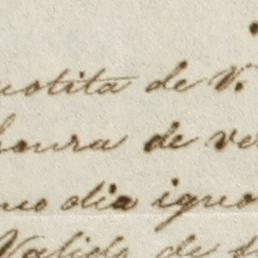 uotita de V.
houra de ve
no dia igno
Valido de